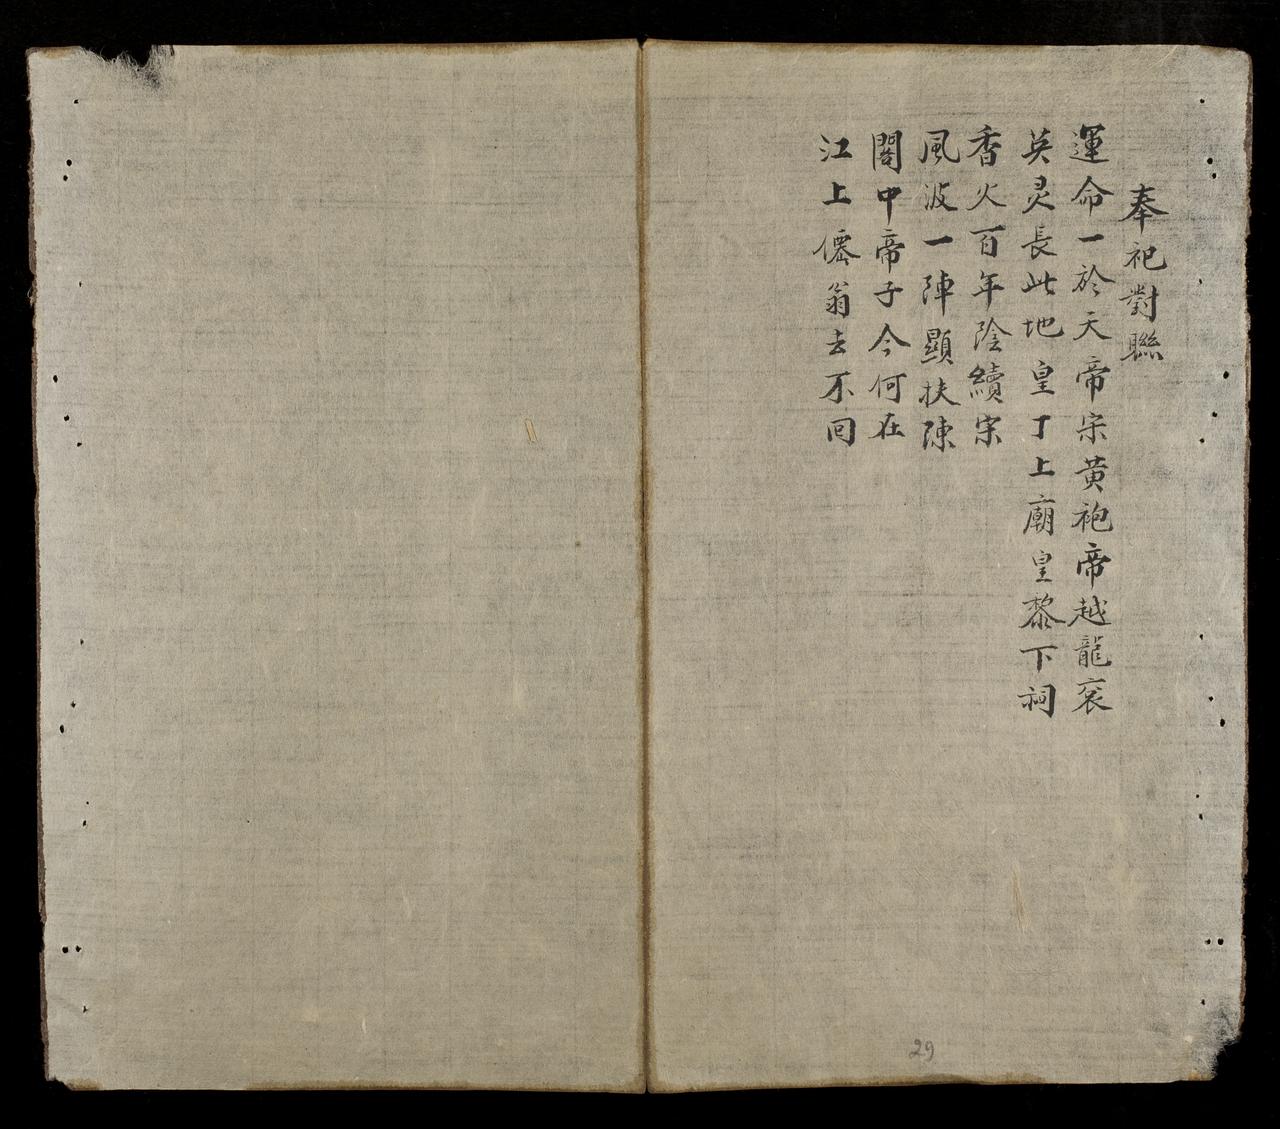 奉祀對聯
運命一於天帝宋黄袍帝越龍衮
英灵長此地皇丁上廟皇黎下祠
香火百年陰續宋
風波一陣顯扶陳
閣中帝子今何在
江上僊翁去不回
29